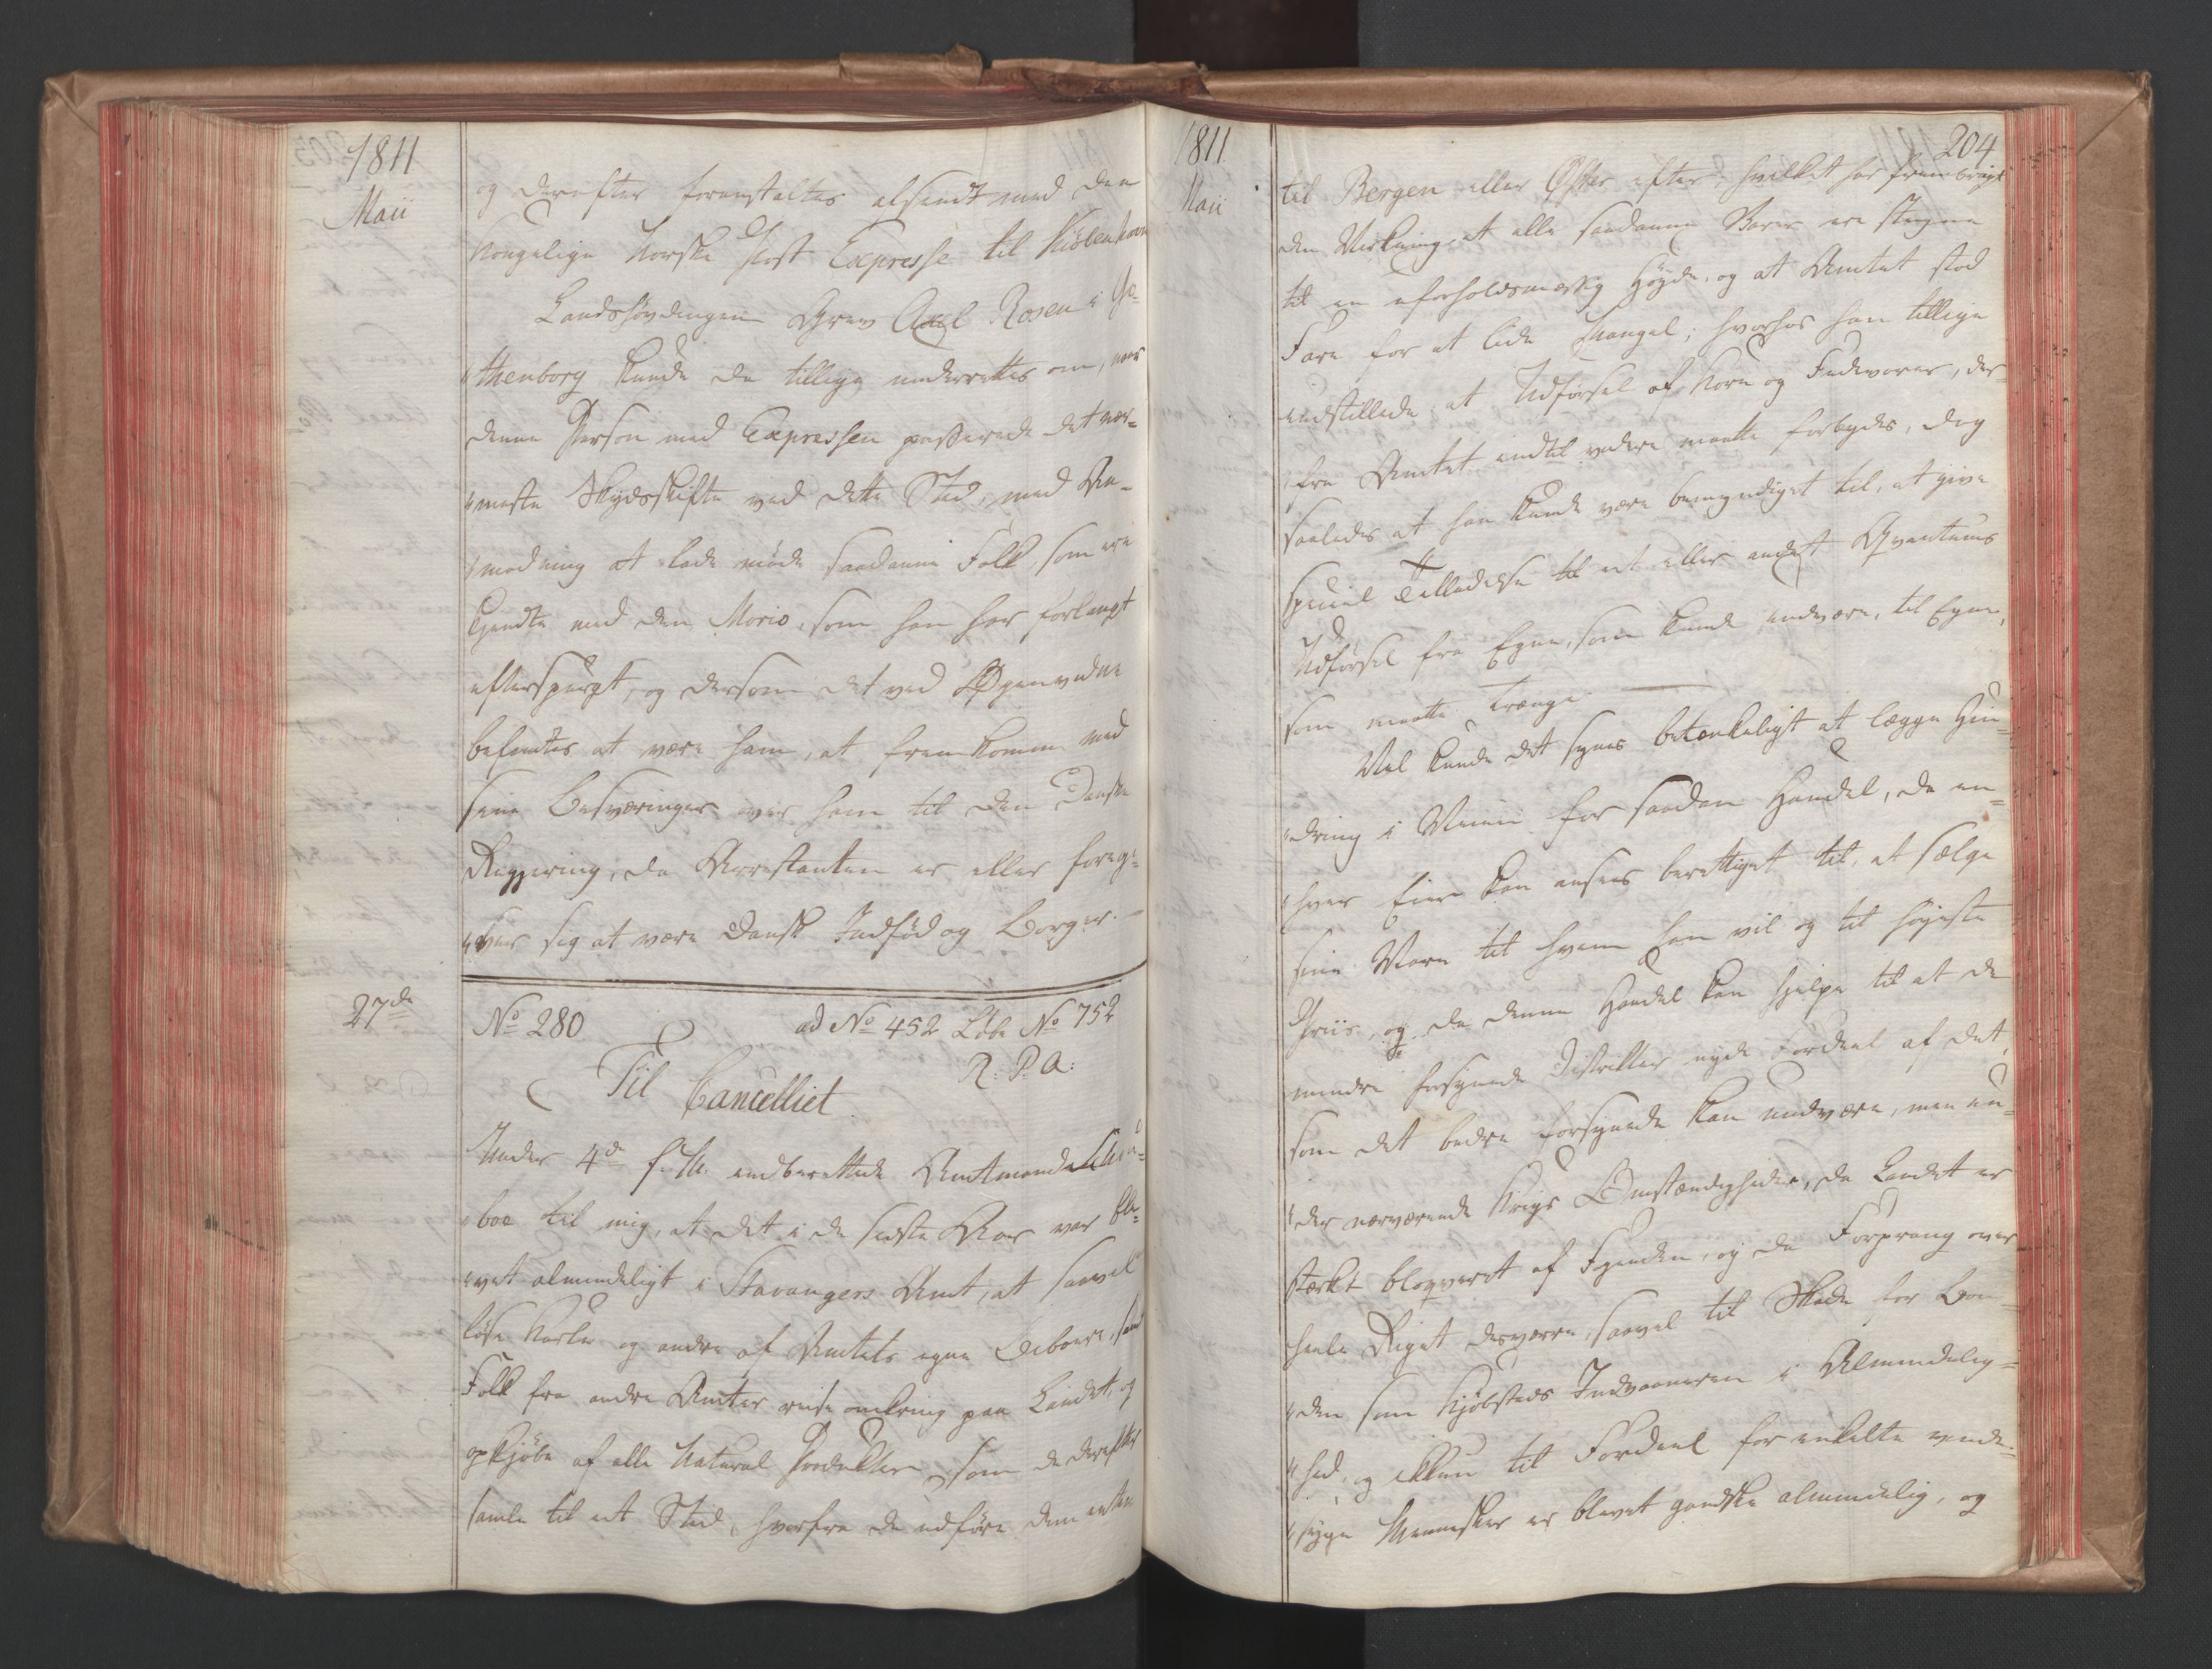 1811
Maii
og derefter foranstaltes afsendt med den
Kongelige Norske Post Expresse til Kiöbenhavn
Landshövdingen Grev Axel Rosen i Go-
thenborg kunde da tillige underrettes om, naar
denne Person med Expressen passerede det nær-
meste Skydsskifte ved dette Sted, med An-
modning at lade möde saadanne Folk, som ere
kjendte med den Morio, som han har forlangt
efterspurgt, og dersom det ved Öyenvidne
befantes at være ham, at fremkomme med
sine Besværinger over ham til den Danske
Regjering, da Arrestanten er eller foregi-
ver sig at være Dansk Indföd og Borger.
27de
No 280
ad No 452 Löbe No 752
R: P. A:
Til Cancelliet.
Under 4de f. M. indberettede Amtmand
boe til mig, at det i de sidste Aar var ble-
vet almindeligt i Stavangers Amt, at saavel
löse Karle og andre af Amtets egne Beboere, som
Folk fra andre Amter reise omkring paa Landet, og
opkjöbe af alle Natural Producter, som de derefter
samle til et Sted, hvorfra de udföre dem enten
1811
Maii
204
til Bergen eller Öster efter, hvilket har frembragt
den Virkning, at alle saadanne Varer ere stegne
til en uforholdsmæssig Höyde, og at Amtet stod
Fare for at lide Mangel; hvorhos han tillige
indstillede, at Udförsel af Korn og Fedevarer, der-
fra Amtet indtil videre maatte forbydes, dog
saaledes at han kunde være bemyndiget til, at give
speciel Tilladelse til et eller andet Qvantums
Udförsel fra Egne, som kunde undvære, til Egne,
som maatte trænge.
Vel kunde det synes betænkeligt at lægge Hin-
dring i Veien for saadan Handel, da en-
hver Eier kan ansees berettiget til, at sælge
sine Varer til hvem han vil og til höjeste
Priis, og da denne Handel kan hjelpe til at de
mindre forsynede Districter nyde Fordeel af det,
som det bedre forsynede kan undvære, men un-
der nærværende Krigs Omstændigheder, da Landet er
stærkt bloqveret af Fjenden, og da Forprang over
heele Riget desværre, saavel til Skade for Bon-
den som Kjöbsteds Indvaaneren i Almindelig-
hed, og ikkun til Fordeel for enkelte vinde-
syge Mennesker er blevet gandske almindelig, og